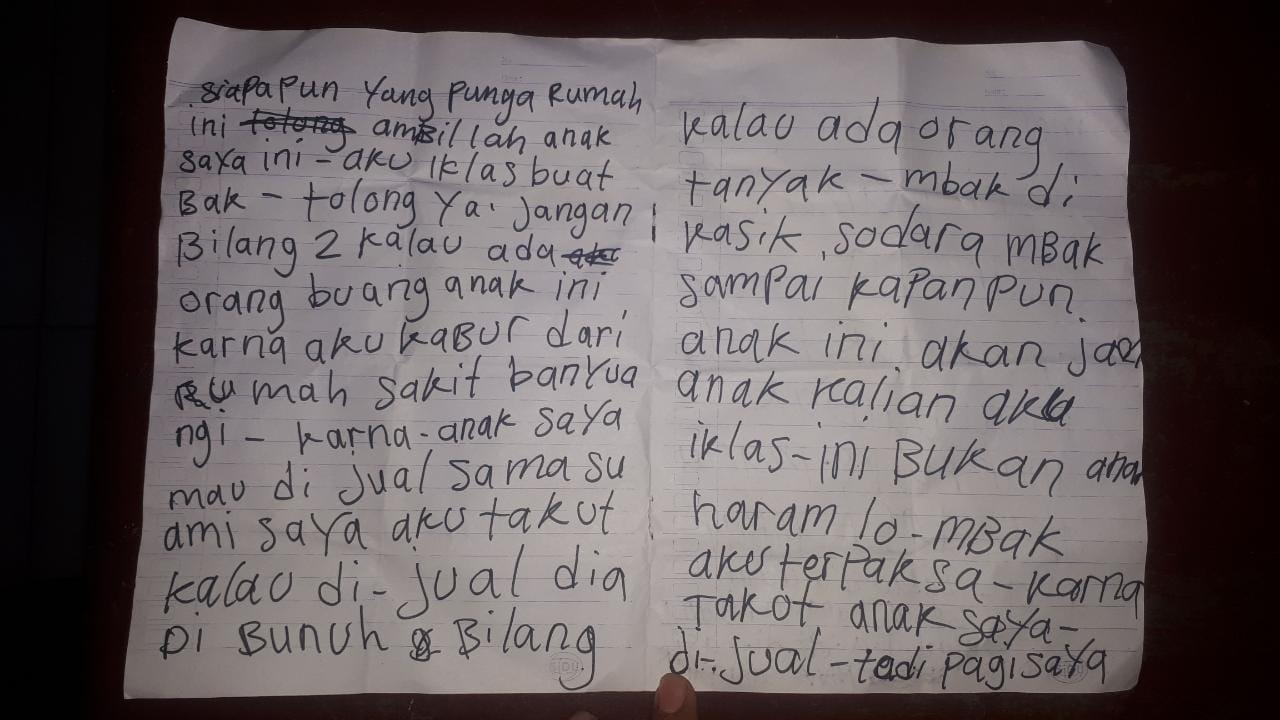 siapapun yang punya Rumah
ini tolong ambillah anak
saya ini - aku iklas buat
Bak - tolong ya. jangan
Bilang 2 kalau ada
orang buang anak ini
karna aku kabur dari
Rumah sakit banyua
ngi - karna - anak saya
mau di jual sama su
ami saya aku takut
kalau di - jual dia
Di Bunuh Bilang
kalau ada orang
tanyak - mbak di
kasik sodara mBak
sampai kapanpun.
anak ini akan jadi
anak kalian aku
iklas - ini Bukan anak
haram lo - mBak
aku terpaksa - karna
Takot anak saya -
di - jual - tadi pagi saya
SIDU